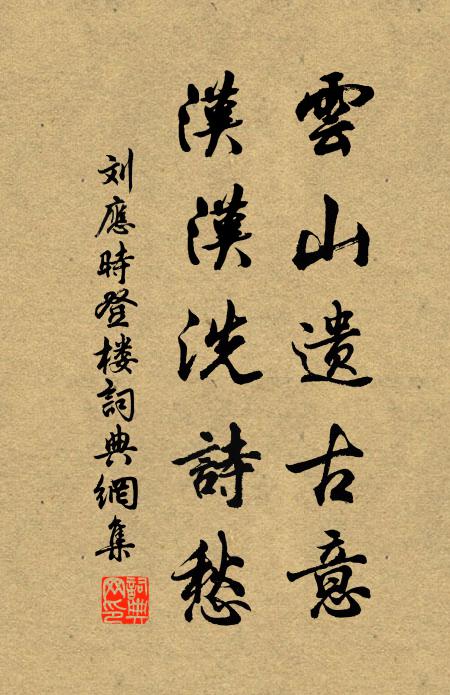 雲山遗古意
漠漠洗詩愁
刘應時登楼詞典網集
詞典
网印